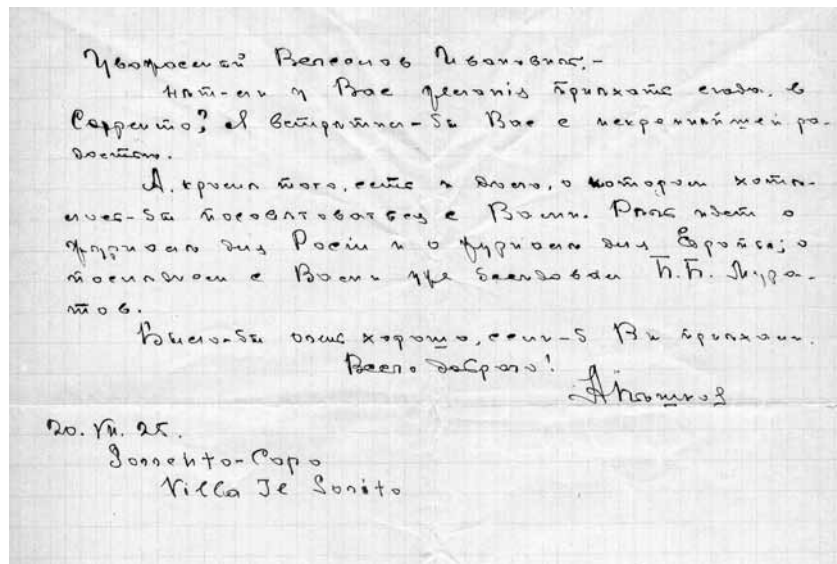 Уважаемый Вячеслав Иванович,-
нет-ли у Вас желания приехать сюда, в
Сорренто? Я встретил-бы Вас с искреннейшей ра-
достью.
А, кроме того, есть и дело, о котором хоте-
лось-бы посоветоваться с Вами. Речь идет о
журнале для Росии и о журнале для Европы; о
последнем с Вами уже беседовал П.П. Мура-
тов.
Было-бы очень хорошо, если-б Вы приехали.
Всего доброго!
А Пешков
20. VII. 25.
Sorrento-Capo
Villa Il Sorito